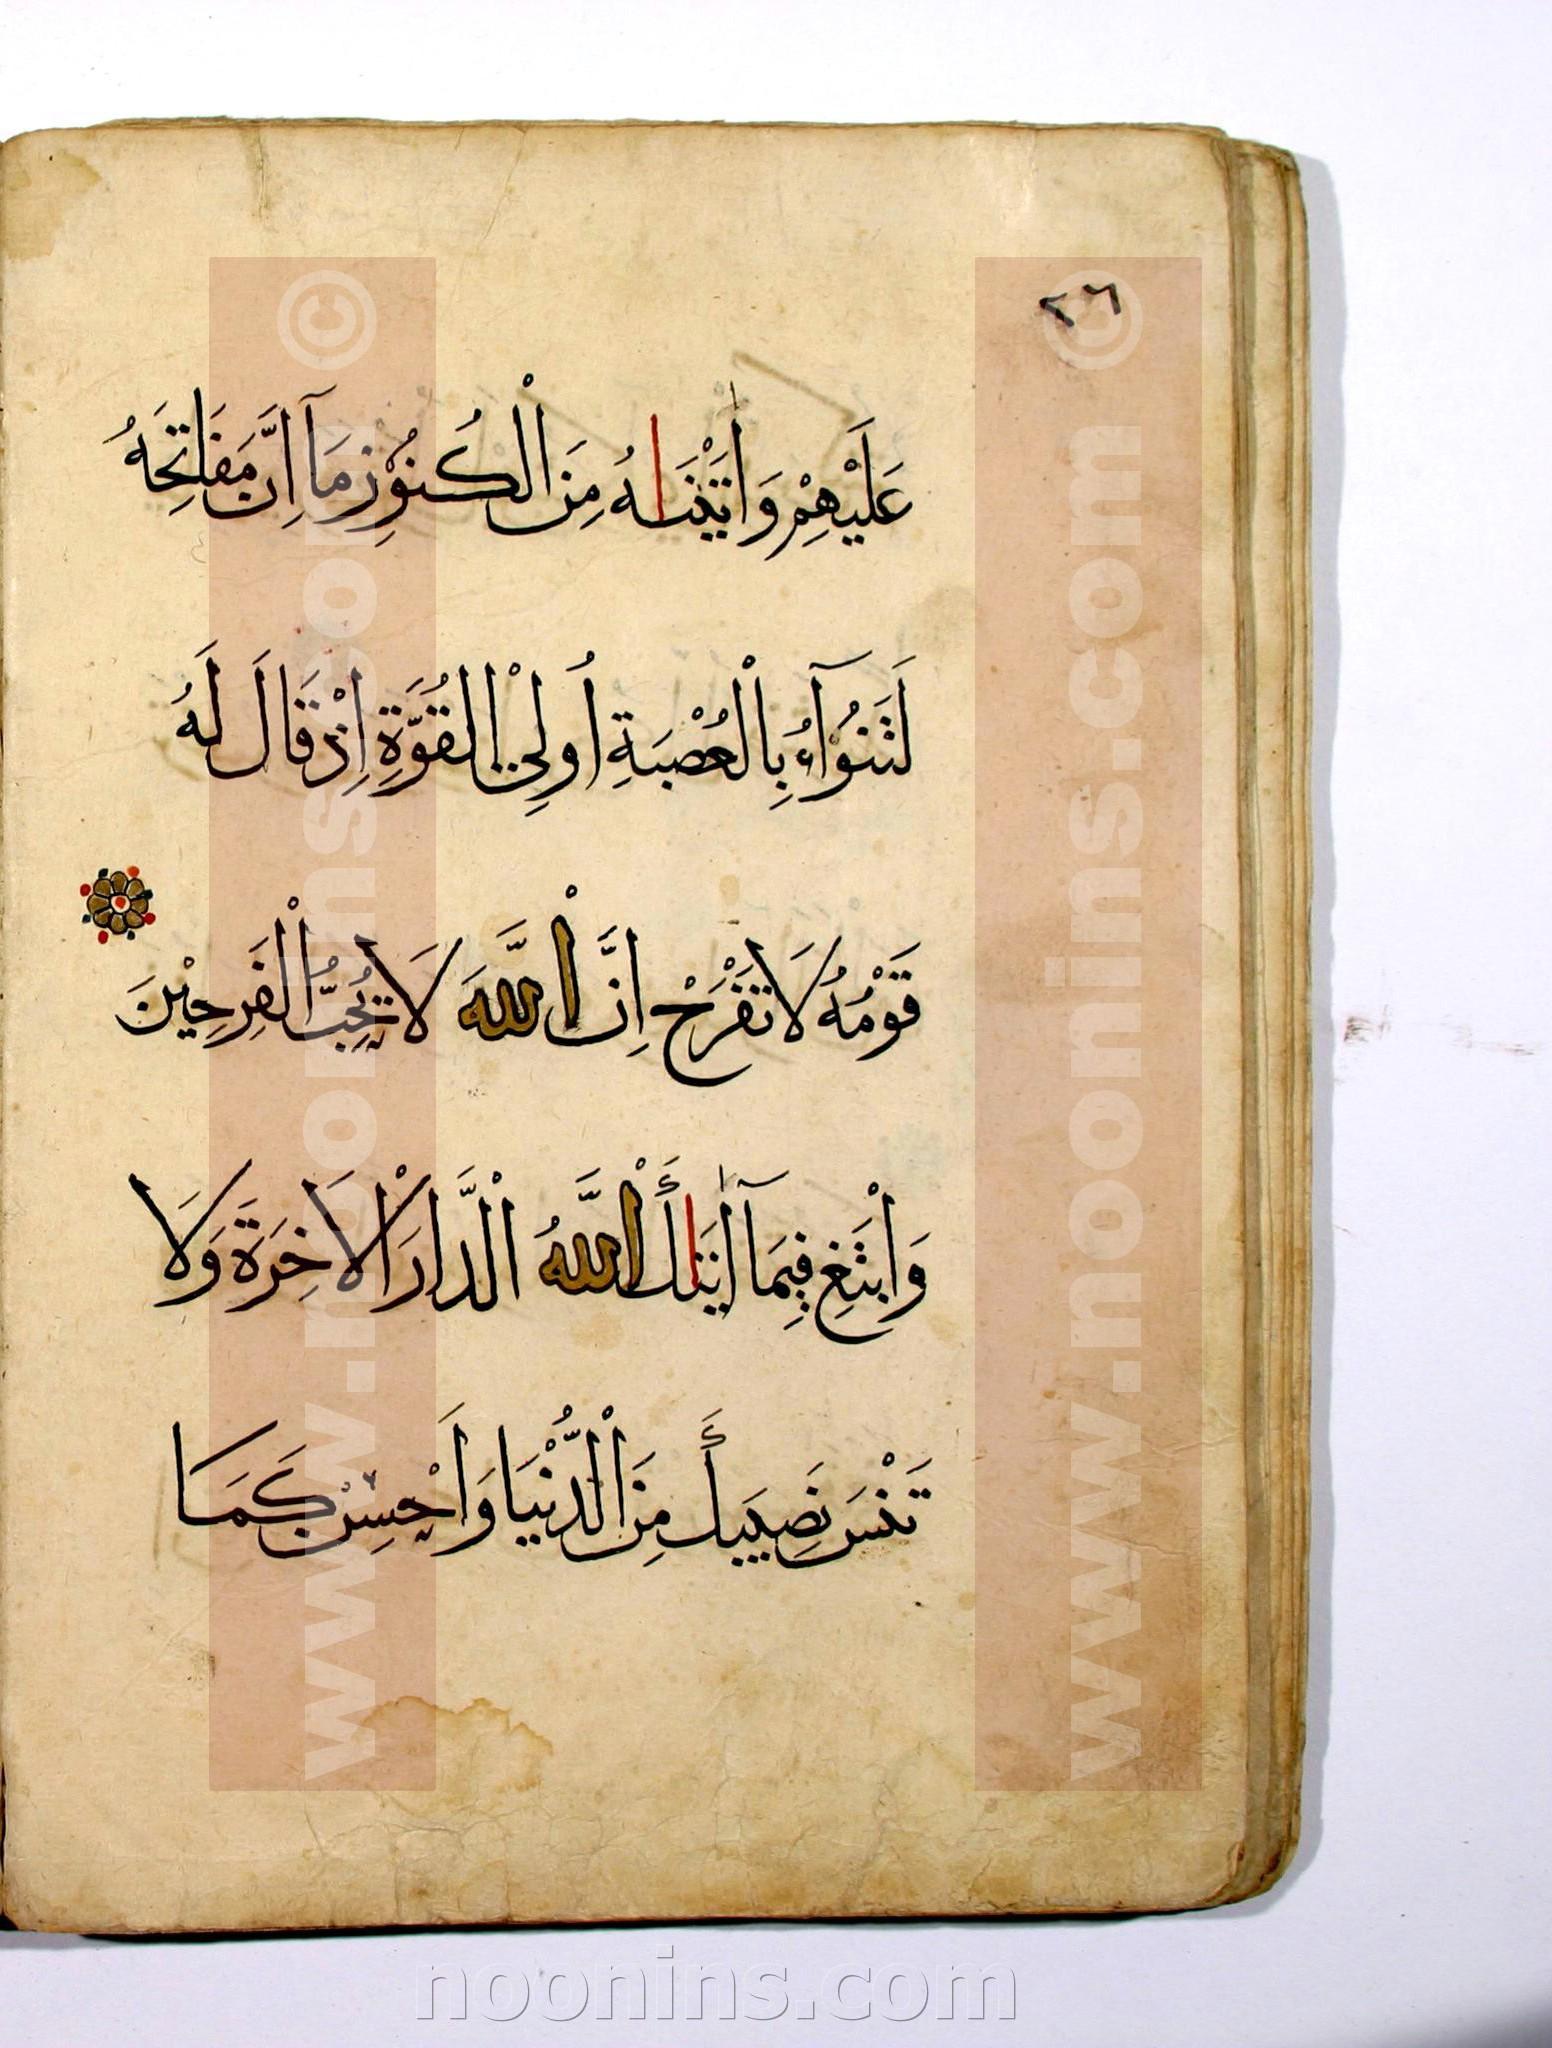 ٢٦
عَلَيْهِمْ وَاٰتَيْنَاهُ مِنَ الْكُنُوْزِ مَآ اِنَّ مَفَاتِحَهُ
لَتَنُوْٓاءُ بِالْعُصْبَةِ اُولِي الْقُوَّةِ اِذْ قَالَ لَهُ
قَوْمُهُ لَا تَفْرَحْ اِنَّ اللَّهَ لَا يُحِبُّ الْفَرِحِيْنَ
وَابْتَغِ فِيمَآ اٰتَىٰكَ اللَّهُ الدَّارَ الْاَخِرَةَ وَلَا
تَنْسَ نَصِيبَكَ مِنَ الدُّنْيَا وَاَحْسِنْ كَمَا
www.noonins.com ©
www.noonins.com ©
noonins.com